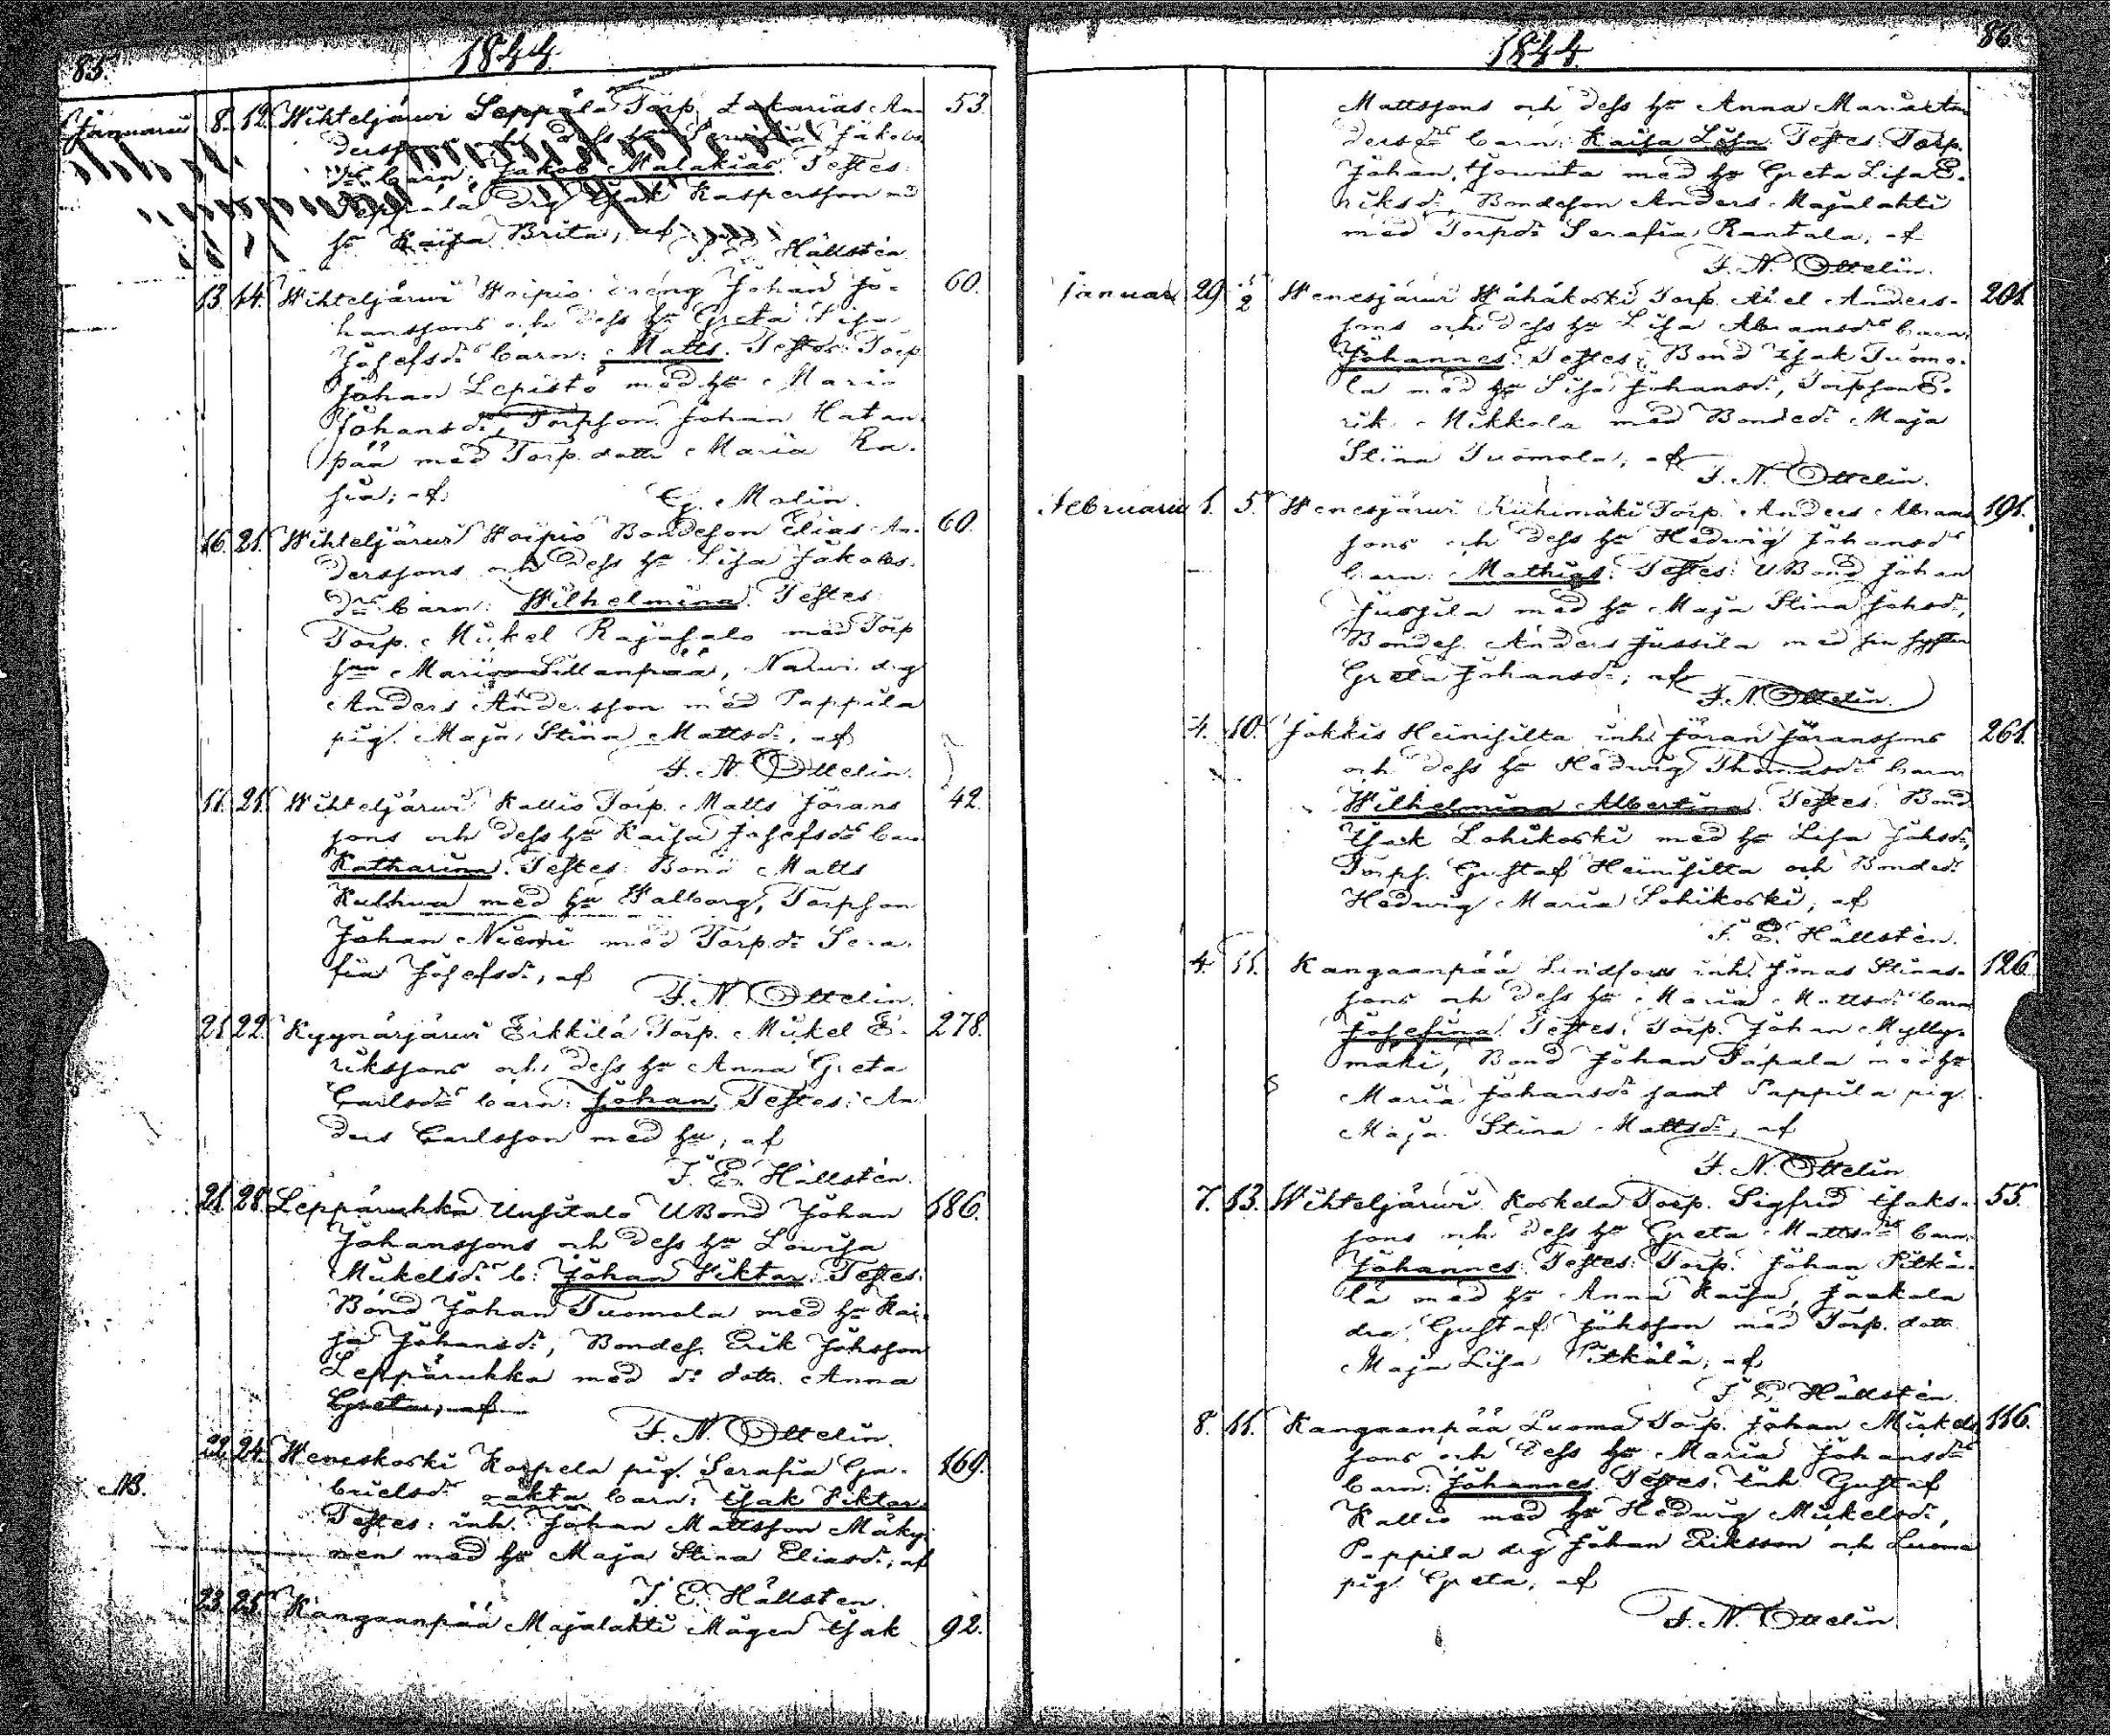 85.
1844.
Januarii 8. 12. Wihteljärwi Seppälä Torp. Zakarias An- 53.
ders
barn: Jakob Malakias. Testes:
Kaspersson med
hu Kaisa Brita, af
J. E. Hällstén.
13. 14. Wihteljärwi Woipio dräng Johan Jo- 60.
hanssons och dess hu Greta Lisa
Josefsdr barn: Matts. Testes: Torp.
Johan Lepistö med hu Maria
Johansdr, Torpson Johan Hatan-
pää med Torp. dottr Maria Ra-
sia; af
G. Malin.
16. 21. Wihteljärwi Woipio Bondeson Elias An- 60.
derssons och dess hu Lisa Jakobs-
dr barn: Wilhelmina. Testes:
Torp. Mikel Rajasalo med Torp
hu Maria Sillanpää, Narwi drg
Anders Andersson med Pappila
pig. Maja Stina Mattsdr, af
F. N. Ottelin.
11. 21. Wihteljärwi Kallio Torp. Matts Jörans- 42.
sons och dess hu Kaisa Josefsdr barn
Katharina. Testes: Bond Matts
Kulhua med hu Walborg, Torpson
Johan Niemi med Torp.dr Sera-
fia Josefsdr, af
F. N. Ottelin.
21. 22. Kyynärjärwi Erkkilä Torp. Mikel E- 278.
rikssons och dess hu Anna Greta
Carlsdr barn: Johan. Testes: An-
ders Carlsson med hu, af
J. E. Hällstén.
21. 28. Leppäruhka Uusitalo UBond Johan 186.
Johanssons och dess hu Lowisa
Mikelsdr b: Johan Viktor. Testes:
Bond Johan Tuomola med hu Kai-
sa Johansdr, Bondes. Erik Johsson
Leppäruhka med dr dottr Anna
Greta, af
F. N. Ottelin.
NB. 22. 24. Weneskoski Korpela pig. Serafia Ga- 169.
brielsdr oäkta barn: Isak Viktor.
Testes: inh. Johan Mattsson Mäky-
nen med hu Maja Stina Eliasdr, af
J. E. Hällstén.
23. 25. Kangaanpää Majalahti Mågen Isak 92.
86.
1844.
Mattssons och dess hu Anna Maria An-
dersdr barn: Kaisa Lisa. Testes: Torp.
Johan Howita med hu Greta Lisa E-
riksdr, Bondeson Anders Majalahti
med Torpdr Serafia Rantala, af
F. N. Ottelin.
Januari 29. 1/2 Wenesjärwi Wähäkoski Torp. Anders- 201.
sons och dess hu Lisa Abramsdr barn:
Johannes. Testes: Bond Isak Tuomo-
la med hu Lisa Johansdr, Torpson E-
rik Mikkola med Bondedr Maja
Stina Tuomola, af
F. N. Ottelin.
Februarii 1. 5. Wenesjärwi Riihimäki Torp. Anders Abrams- 191.
sons och dess hu Hedwig Johansdr
barn: Mathias. Testes: UBond Johan
Jussila med hu Maja Stina Johsdr,
Bondes. Anders Jussila med sin syster
Greta Johansdr, af
F. N. Ottelin.
4. 10. Jokkis Heinisilta inh. Jöran Jöranssons 261.
och dess hu Hedwig Thomasdr barn
Wilhelmina Albertina. Testes: Bond
Isak Lohikoski med hu Lisa Johsdr,
Torps. Gustaf Heinisilta och Bondedr
Hedwig Maria Lohikoski, af
J. E. Hällstén.
4. 11. Kangaanpää Lindfors inh. Jonas Stinas- 126.
sons och dess hu Maria Mattsdr barn
Josefina. Testes: Torp. Johan Mylly-
mäki, Bond Johan Papala med hu
Maria Johansdr samt Pappila pig.
Maja Stina Mattsdr, af
F. N. Ottelin
7. 13. Wihteljärwi Koskela Torp. Sigfrid Isaks- 55.
sons och dess hu Greta Mattsdr barn:
Johannes. Testes: Torp. Johan Pitkä-
lä med hu Anna Kaisa, Jaakola
drg. Gustaf Johsson med Torp. dottr
Maja Lisa Pitkälä, af
J. E. Hällstén.
8. 11. Kangaanpää Luoma Torp. Johan Mickels- 116.
sons och dess hu Maria Johansdr
barn: Johannes. Testes: Inh Gustaf
Kallio med hu Hedwig Mikelsdr,
Pappila drg Johan Eriksson och Luoma
pig Greta, af
F. N. Ottelin